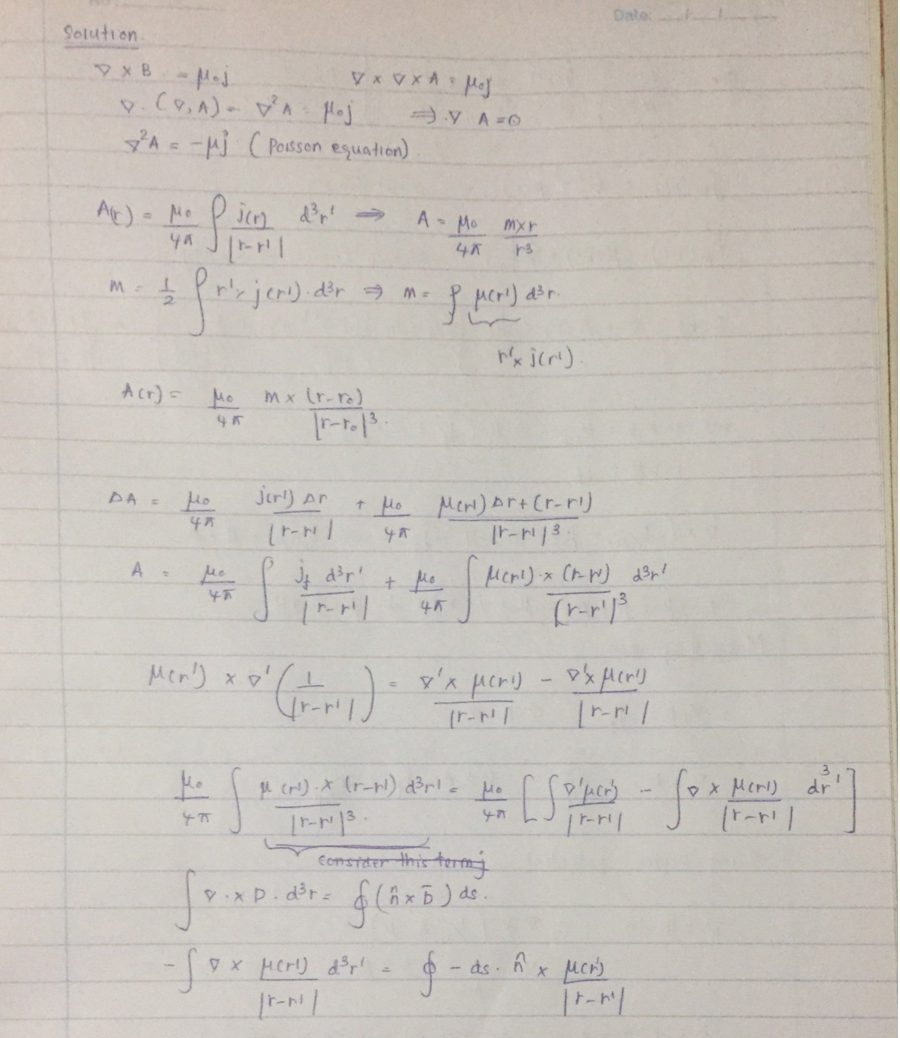 Date: ... / ... / ...
Solution.
∇ × B = μ₀j ∇ × ∇ × A = μ₀j
∇. (∇, A) − ∇²A = μ₀j ⇒ ∇ A = 0
∇²A = −μj (Poisson equation)
A(r) = μ₀/4π ∫ j(r)/|r−r'| d³r' ⇒ A = μ₀/4π m×r/r³
m = 1/2 ∫ r' × j(r') . d³r ⇒ m = ∫ μ(r') d³r.
r' × j(r').
A(r) = μ₀/4π m × (r−r₀)/|r−r₀|³.
ΔA = μ₀/4π j(r') Δr/|r−r'| + μ₀/4π μ(r') Δr + (r−r')/|r−r'|³
A = μ₀/4π ∫ j_f d³r'/|r−r'| + μ₀/4π ∫ μ(r') × (r−r')/|r−r'|³ d³r'
μ(r') × ∇' (1/|r−r'|) = ∇' × μ(r')/|r−r'| − ∇' × μ(r')/|r−r'|
μ₀/4π ∫ μ(r') . × (r−r') d³r'/|r−r'|³. = μ₀/4π [∫ ∇'μ(r')/|r−r'| − ∫ ∇ × μ(r')/|r−r'| d³r']
consider this term
∫ ∇ . × D . d³r = ∮ (n̂ × b̄) ds.
− ∫ ∇ × μ(r')/|r−r'| d³r' = ∮ − ds . n̂ × μ(r')/|r−r'|